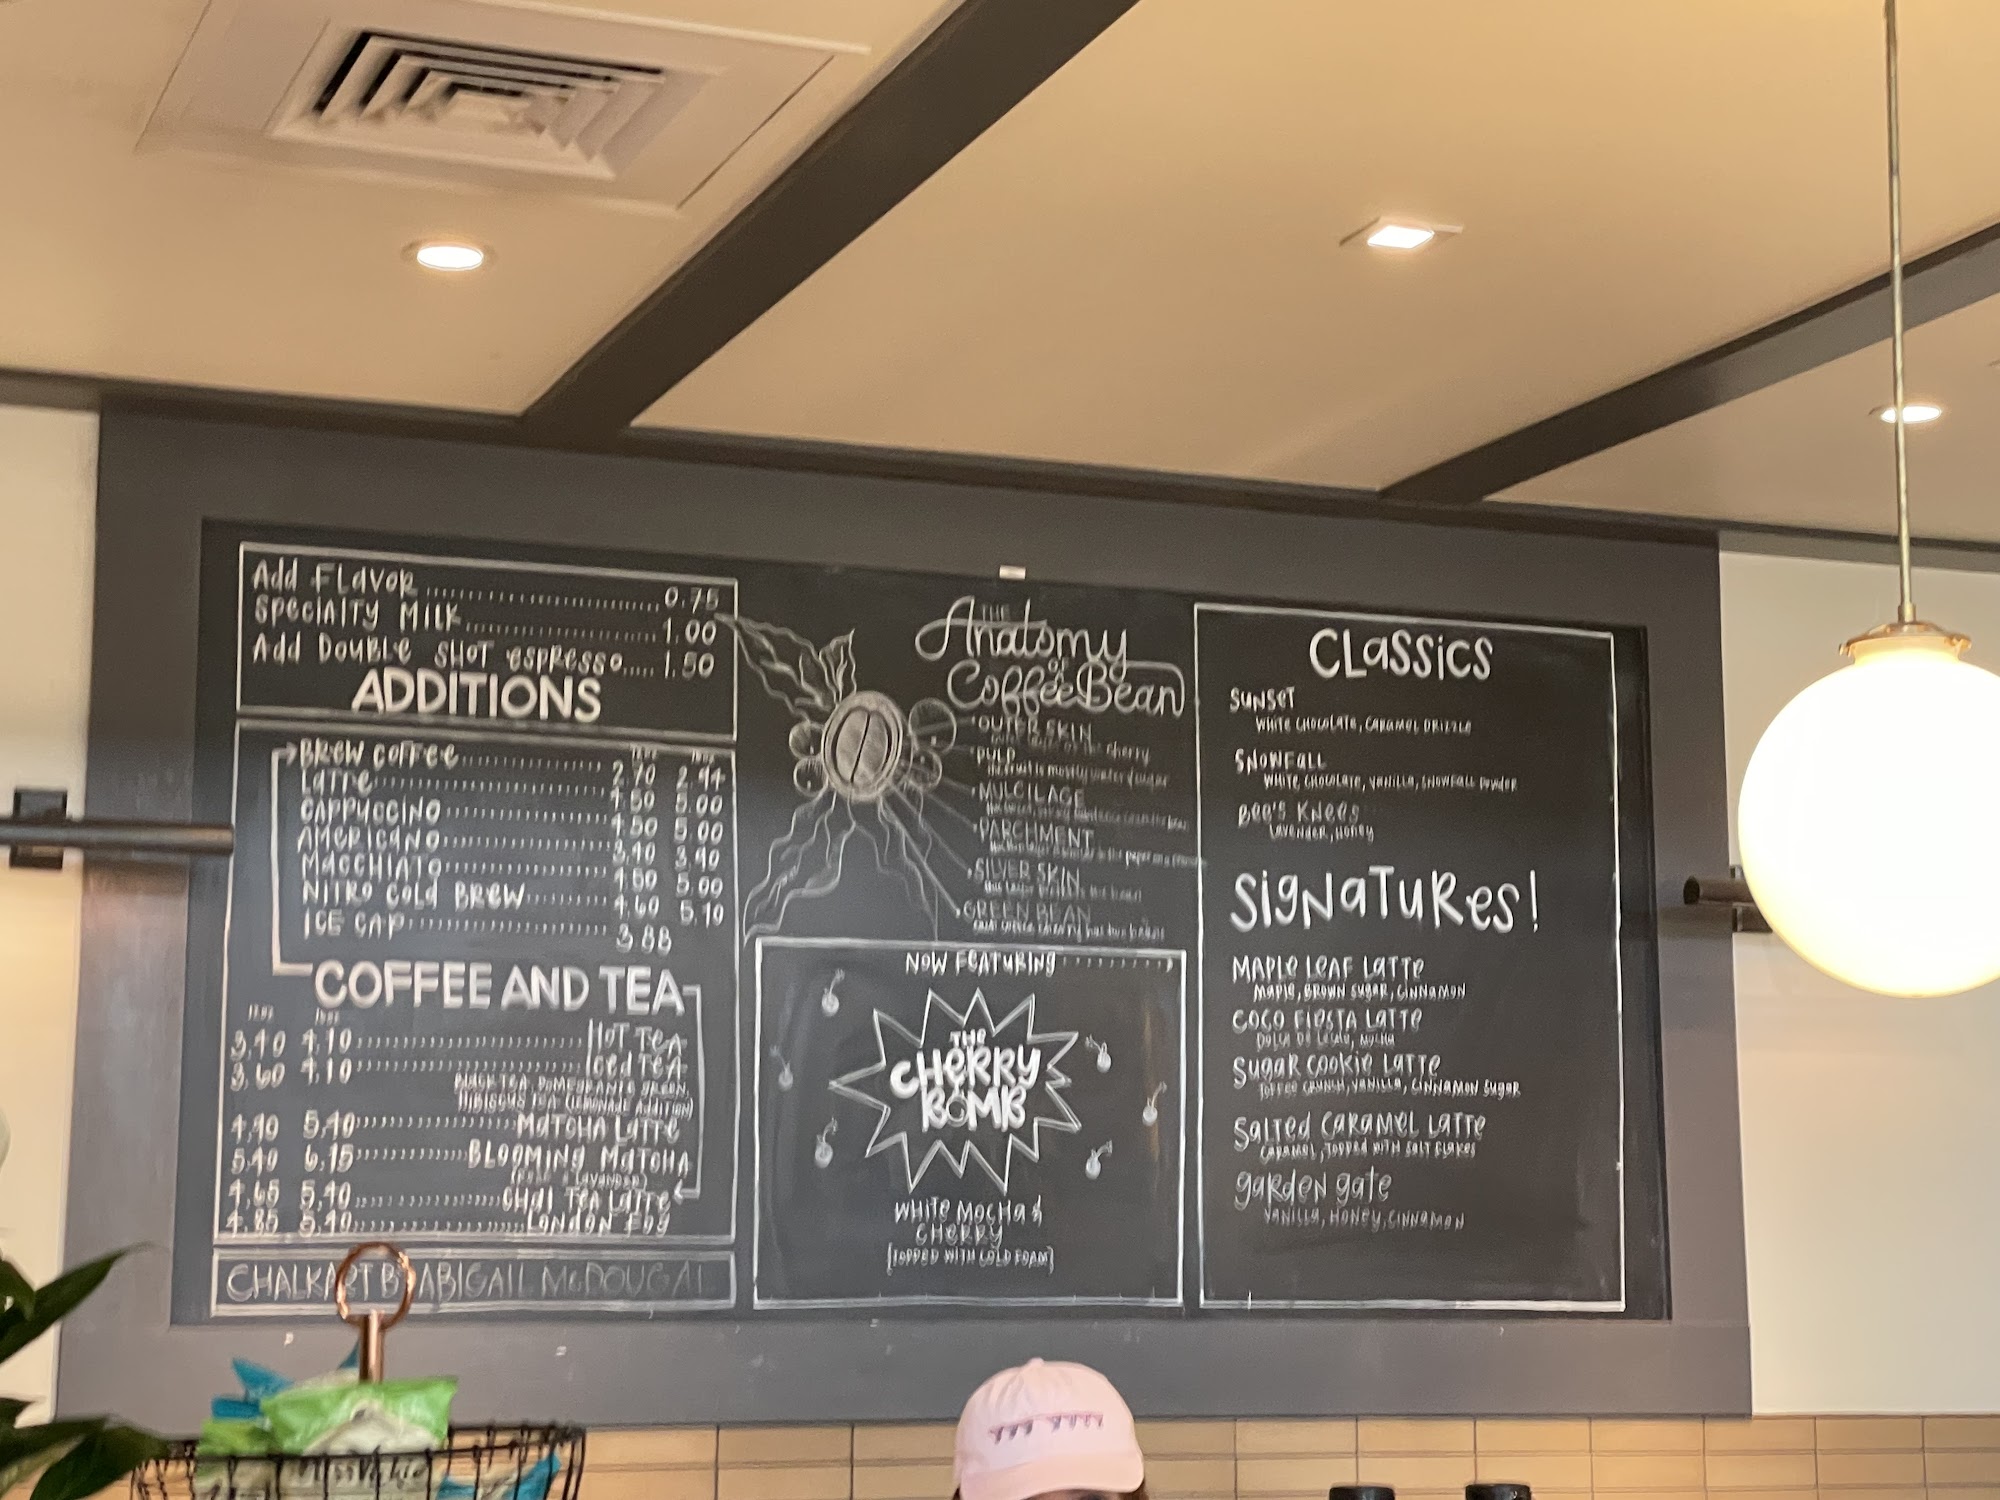 Add Flavor 0.75
Specialty Milk 1.00
Add Double Shot espresso 1.50
ADDITIONS
Brew Coffee 2.70 2.94
Latte 4.50 5.00
Cappuccino 4.50 5.00
Americano 3.40 3.90
Macchiato 4.50 5.00
Nitro Cold Brew 4.60 5.10
Ice Cap 3.88
COFFEE AND TEA
12oz 16oz
3.40 4.10 Hot Tea
3.60 4.10 Iced Tea
Black Tea, Pomegranate Green,
Hibiscus Tea (Lemonade Addition)
4.90 5.40 Matcha Latte
5.40 6.15 Blooming Matcha
(Rose & Lavander)
4.65 5.40 Chai Tea Latte
4.85 5.40 London Fog
CHALKART BY ABIGAIL McDOUGAL
THE
Anatomy
OF
Coffee Bean
OUTER SKIN
of the cherry
PULP
the fruit is mostly water & sugar
MULCILAGE
PARCHMENT
SILVER SKIN
GREEN BEAN
NOW FEATURING
THE
CHERRY
BOMB
White Mocha &
Cherry
[Topped with Cold Foam]
Classics
Sunset
White Chocolate, Caramel Drizzle
Snowfall
White Chocolate, Vanilla, Snowfall Powder
Bee's Knees
Lavender, Honey
Signatures!
Maple Leaf Latte
Maple, Brown Sugar, Cinnamon
Coco Fiesta Latte
Dolce de Leche, Mocha
Sugar Cookie Latte
Toffee Crunch, Vanilla, Cinnamon Sugar
Salted Caramel Latte
Caramel, Topped with Salt Flakes
Garden Gate
Vanilla, Honey, Cinnamon